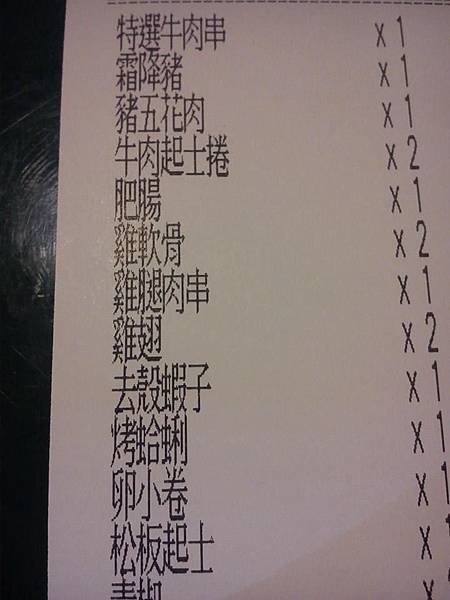 特選牛肉串 x 1
霜降豬 x 1
豬五花肉 x 1
牛肉起士捲 x 2
肥腸 x 1
雞軟骨 x 2
雞腿肉串 x 1
雞翅 x 2
去殼蝦子 x 1
烤蛤蜊 x 1
卵小卷 x 1
松板起士 x 1
青椒